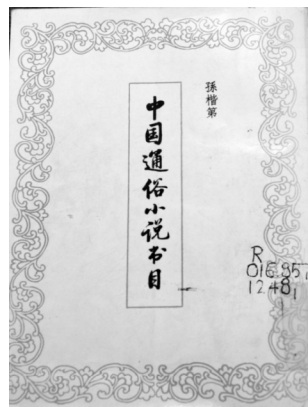 孫楷第
中国通俗小说书目
R
016.957
1248
1